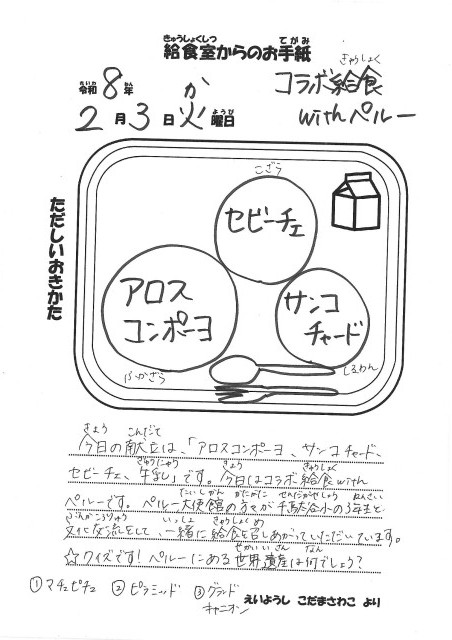 きゅうしょくしつ てがみ
給食室からのお手紙
れいわ ねん
令和8年
きゅうしょく
コラボ給食
withペルー
か ようび
2月3日火曜日
ただしいおきかた
こざら
セビーチェ
アロス
コンポーヨ
サンコ
チャード
しるわん
きょう こんだて
今日の献立は、「アロスコンポーヨ、サンコチャード、
ぎゅうにゅう きょう きゅうしょく
セビーチェ、牛乳」です。今日はコラボ給食with
たいしかん かたがた ねんせい
ペルーです。ペルー大使館の方々が千駄谷小の3年生と
いっしょ きゅうしょく め
文化交流をして、一緒に給食を召しあがっていただいています。
せかいいさん なん
☆クイズです!ペルーにある世界遺産は何でしょう?
①マチュピチュ ②ピラミッド ③グランドキャニオン
えいようし こだまさわこ より